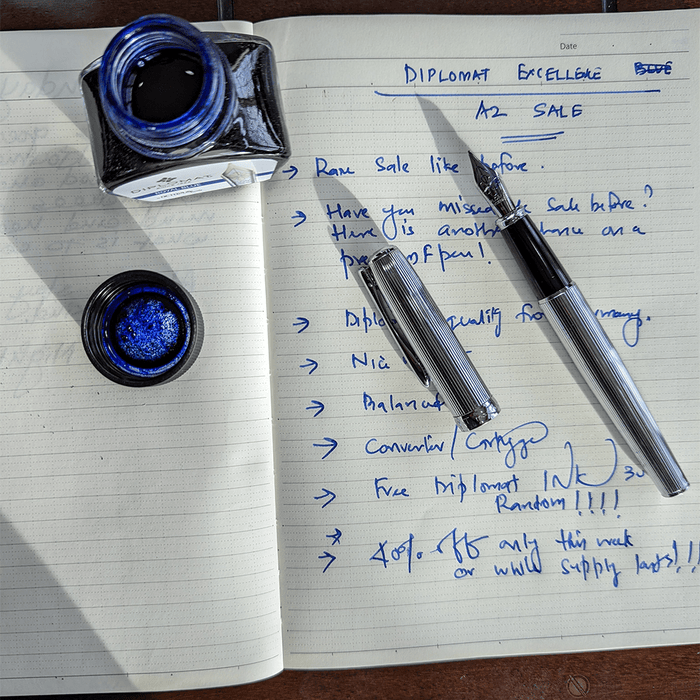 Date
DIPLOMAT EXCELLENCE BLUE
A2 SALE
→ Rare Sale like before.
→ Have you missed sale before?
Here is another chance on a
pen!
→ quality
→
→
→ Converter / Cartridge
→ Free Diplomat INK 30
Random!!!!
→
→ 40% off only this week
or while supply lasts!!!
DIPLOMAT
ROYAL BLUE